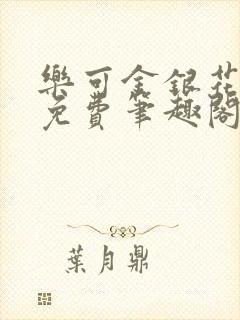 樂可金銀花
免費筆趣閣
葉月鼎